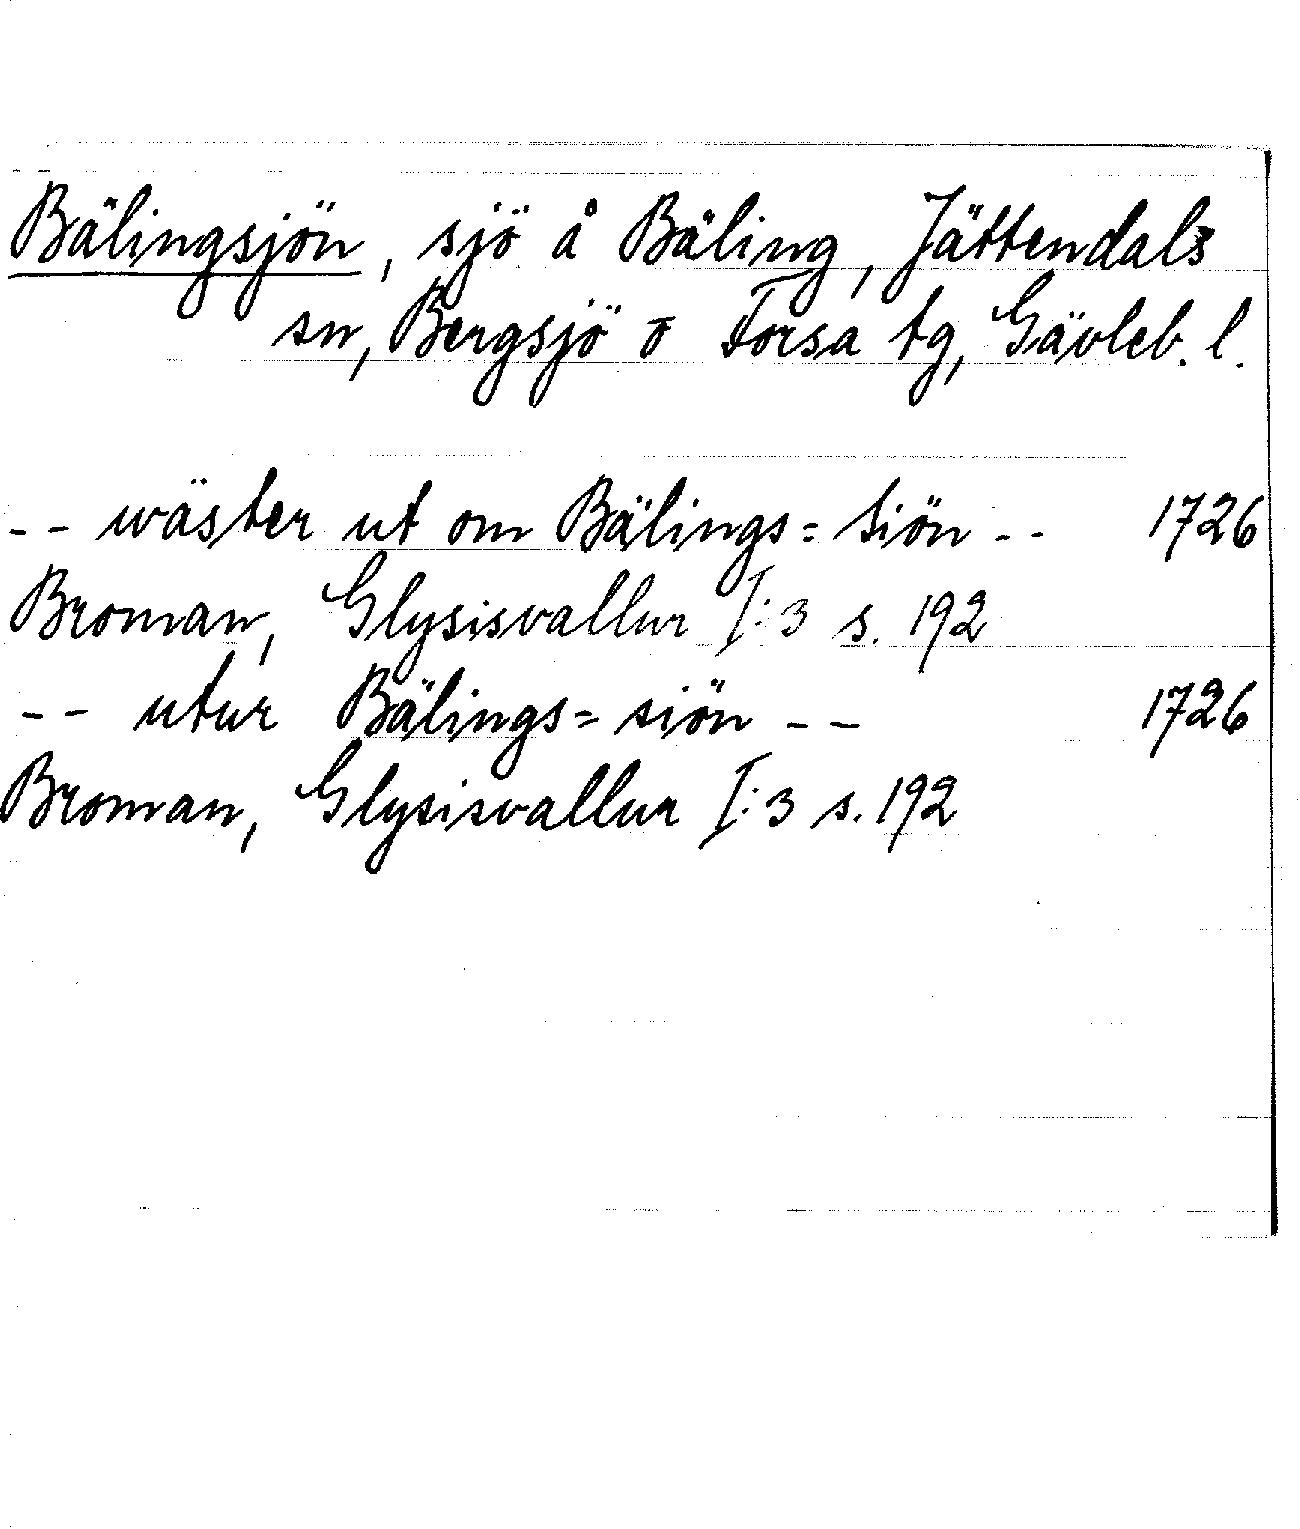 Bälingsjön, sjö å Bäling, Jättendals
sn, Bergsjö o Forsa tg, Gävleb. l.
-- wäster ut om Bälings= siön -- 1726
Broman, Glysisvallur I:3 s. 192
-- utur Bälings= siön -- 1726
Broman, Glysisvallur I:3 s. 192